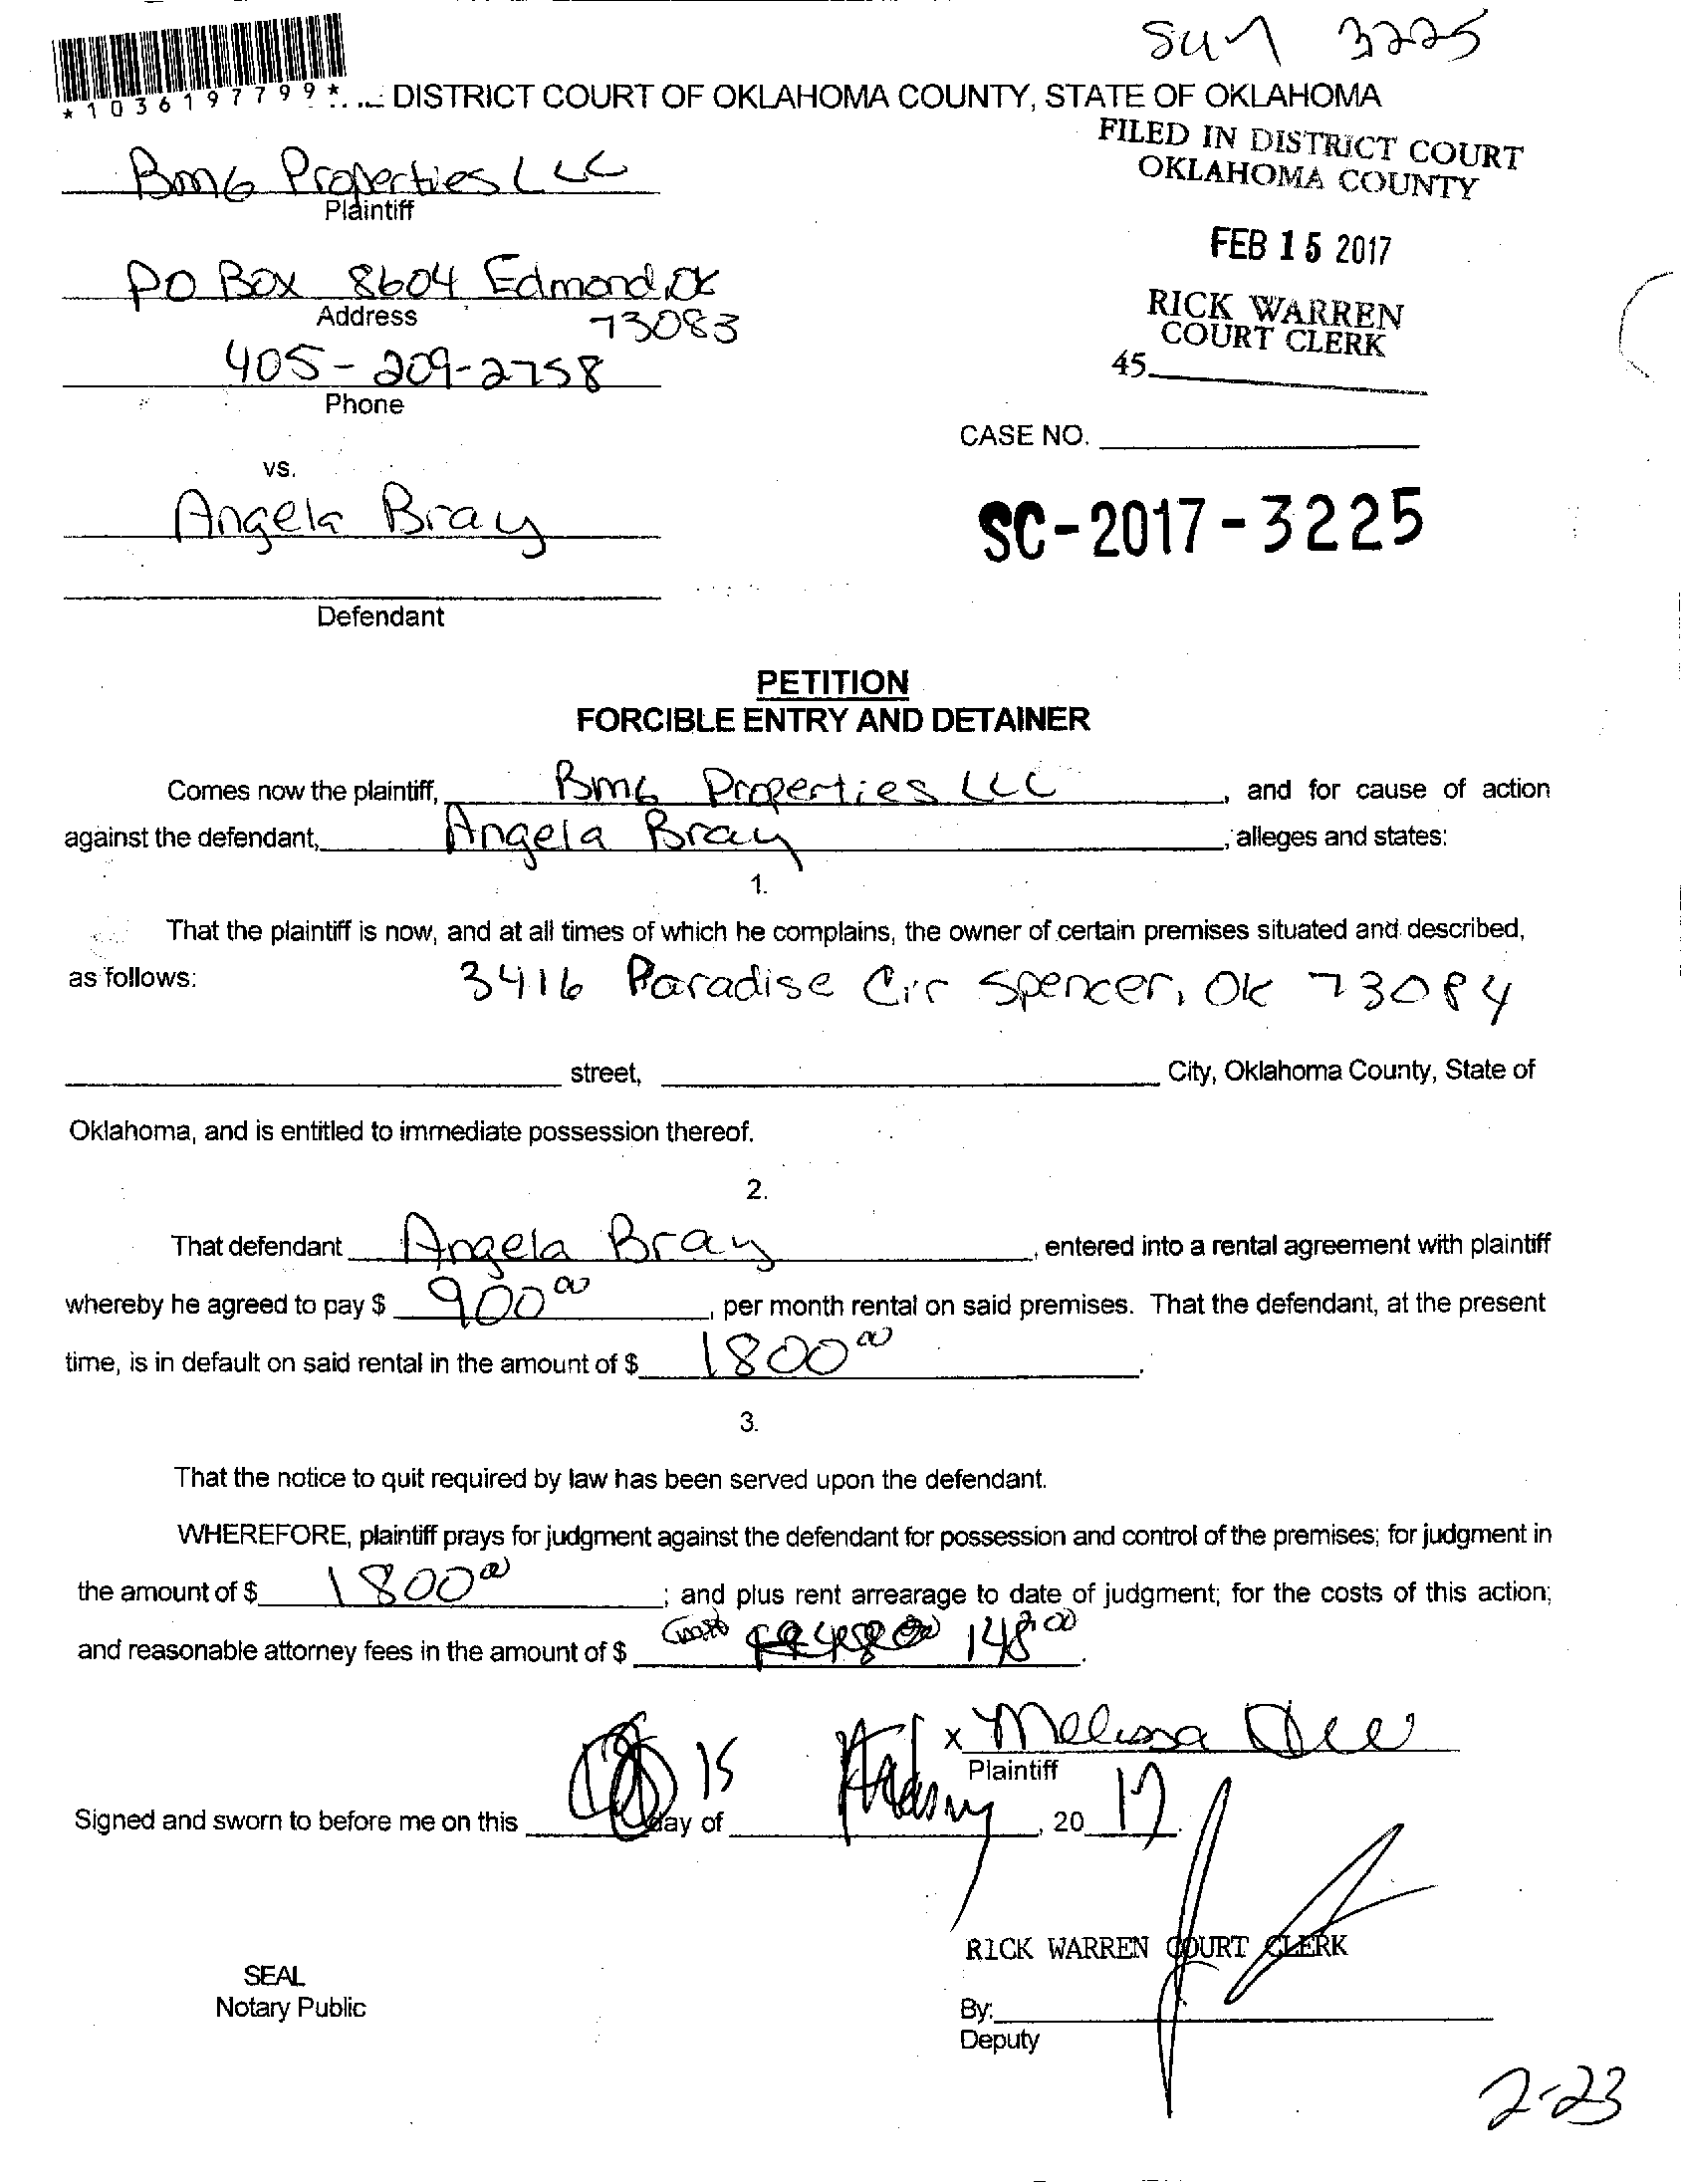 Sun 3225
*1036197799*
DISTRICT COURT OF OKLAHOMA COUNTY, STATE OF OKLAHOMA
FILED IN DISTRICT COURT
OKLAHOMA COUNTY
BMG Properties LLC
Plaintiff
FEB 15 2017
PO Box 8604 Edmond, OK
Address 73083
RICK WARREN
COURT CLERK
45
405-209-2758
Phone
CASE NO.
vs.
Angela Bray
SC-2017-3225
Defendant
PETITION
FORCIBLE ENTRY AND DETAINER
Comes now the plaintiff, BMG Properties LLC, and for cause of action
against the defendant, Angela Bray, alleges and states:
1.
That the plaintiff is now, and at all times of which he complains, the owner of certain premises situated and described,
as follows: 3416 Paradise Cir Spencer, OK 73084
street, City, Oklahoma County, State of
Oklahoma, and is entitled to immediate possession thereof.
2.
That defendant Angela Bray, entered into a rental agreement with plaintiff
whereby he agreed to pay $ 900 00, per month rental on said premises. That the defendant, at the present
time, is in default on said rental in the amount of $ 1800 00.
3.
That the notice to quit required by law has been served upon the defendant.
WHEREFORE, plaintiff prays for judgment against the defendant for possession and control of the premises; for judgment in
the amount of $ 1800 00; and plus rent arrearage to date of judgment; for the costs of this action;
and reasonable attorney fees in the amount of $ 148.00.
x Melissa
Plaintiff
Signed and sworn to before me on this 15 day of February, 20 17.
RICK WARREN COURT CLERK
SEAL
Notary Public
By:
Deputy
2-23